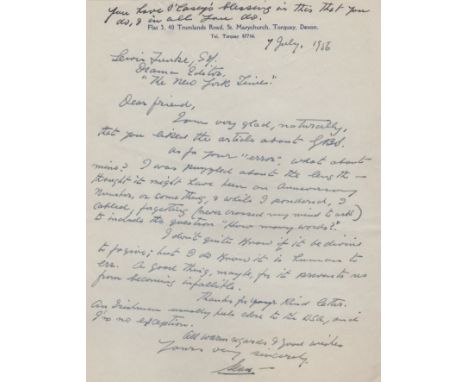 you have O'Casey's blessing in this that you
do, & in all you do.
Flat 3, 40 Trumlands Road, St. Marychurch, Torquay, Devon.
Tel. Torquay 87766.
9 July, 1956
Lewis Funke, Esq.
Drama Editor,
"The New York Times."
Dear friend,
I am very glad, naturally,
that you liked the article about GBS.
As for your "error" what about
mine? I was puzzled about the length —
thought it might have been an Anniversary
Number, or something, & while I pondered, I
cabled, forgetting (never crossed my mind to ask)
to include the question "How many words?"
I don't quite know if it be divine
to forgive; but I do know it is human to
err. A good thing, maybe, for it prevents us
from becoming infallible.
Thanks for your kind letter.
An Irishman usually feels close to the USA, and
I'm no exception.
All warm regards & good wishes
Yours very sincerely,
Sean